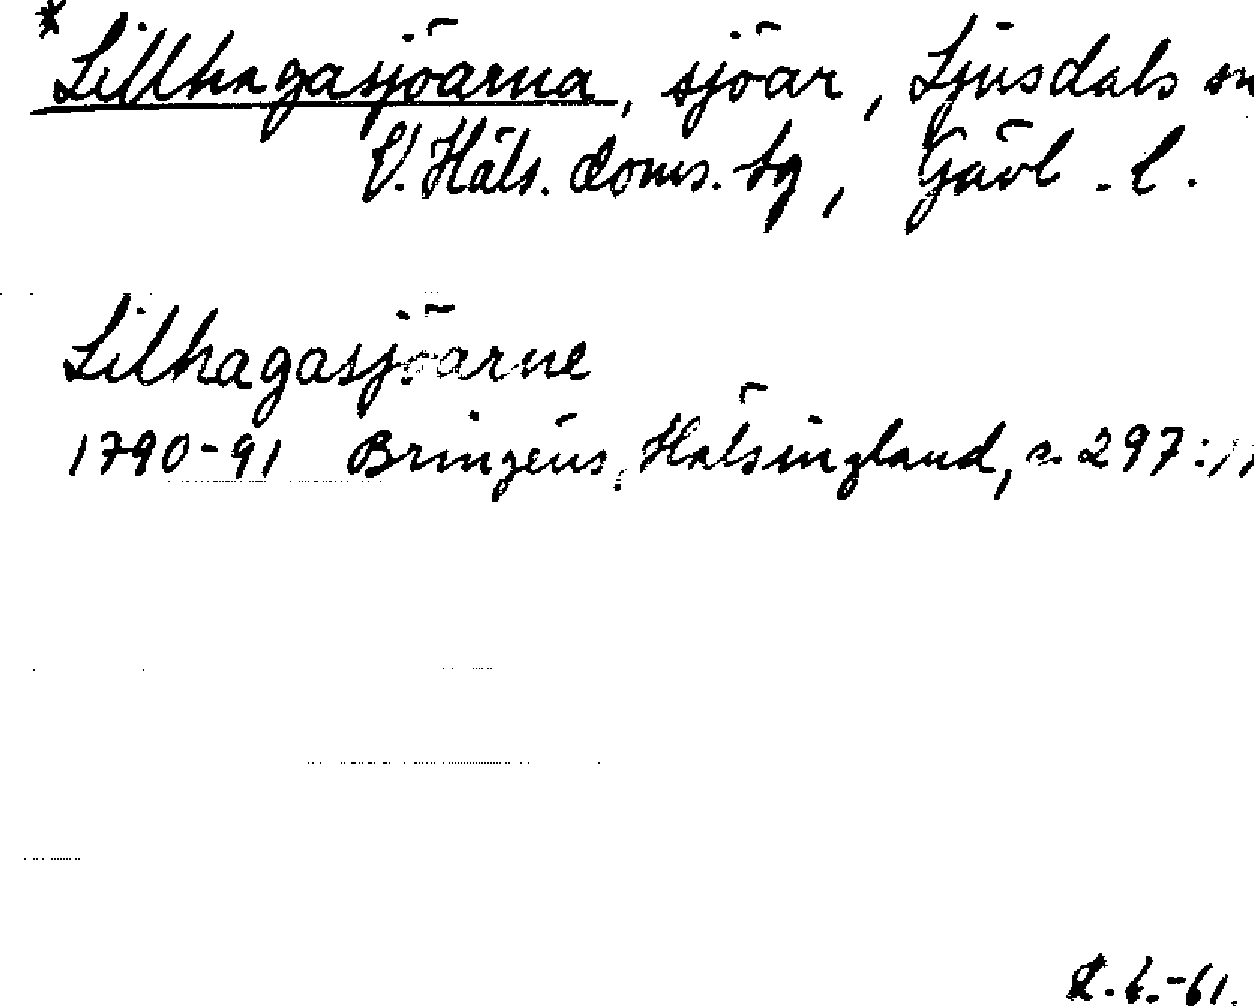 * Lillhagasjöarna, sjöar, Ljusdals sn
V. Häls. doms. tg, Gävl. l.
Lilhagasjöarne
1790-91 Bringéus, Hälsingland, s. 297: